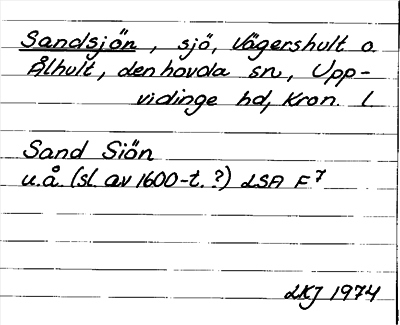 Sandsjön, sjö, Vägershult o.
Ålhult, Lenhovda sn, Upp-
vidinge hd, Kron. l.
Sand Siön
u.å. (sl. av 1600-t.?) LSA F 7
LKJ 1974